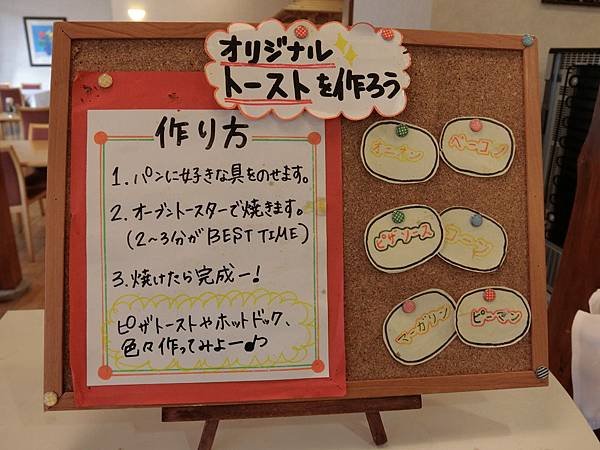 オリジナル
トーストを作ろう
作り方
1. パンに好きな具をのせます。
2. オーブントースターで焼きます。
(2～3分がBEST TIME)
3. 焼けたら完成ー!
ピザトーストやホットドック、
色々作ってみよー♪
オニオン
ベーコン
ピザソース
コーン
マーガリン
ピーマン